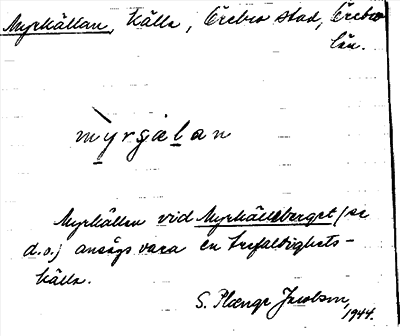 Myrkällan, Källa, Örebro stad, Örebro
län.
m̀yrsjȧlan
Myrkällan vid Myrkällberget (se
d.o.) ansågs vara en trefaldighets-
källa.
S. Plænge Jacobson,
1944.